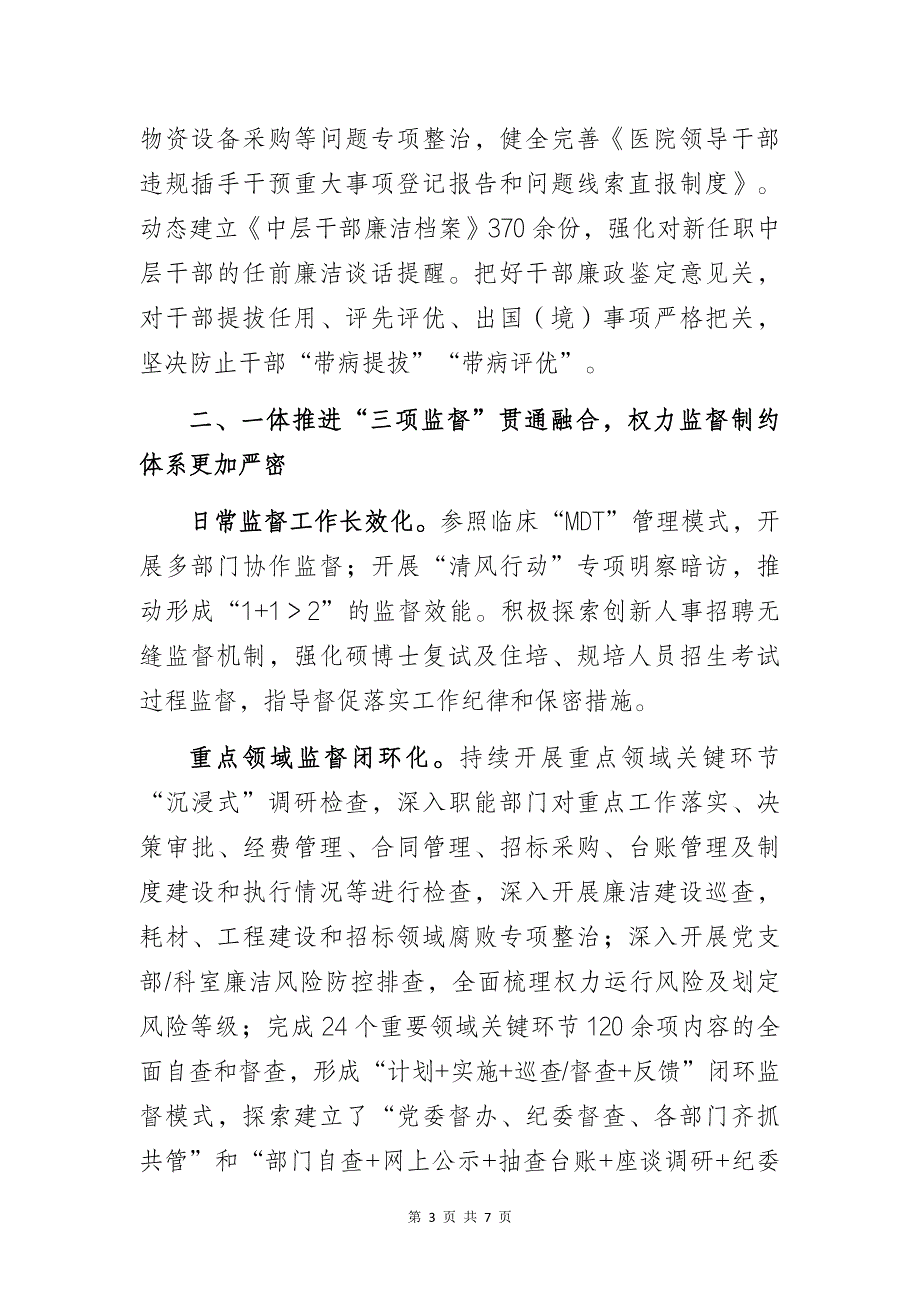 物资设备采购等问题专项整治，健全完善《医院领导干部
违规插手干预重大事项登记报告和问题线索直报制度》。
动态建立《中层干部廉洁档案》370 余份，强化对新任职中
层干部的任前廉洁谈话提醒。把好干部廉政鉴定意见关，
对干部提拔任用、评先评优、出国（境）事项严格把关，
坚决防止干部“带病提拔”“带病评优”。
二、一体推进“三项监督”贯通融合，权力监督制约
体系更加严密
日常监督工作长效化。参照临床“MDT”管理模式，开
展多部门协作监督；开展“清风行动”专项明察暗访，推
动形成“1+1＞2”的监督效能。积极探索创新人事招聘无
缝监督机制，强化硕博士复试及住培、规培人员招生考试
过程监督，指导督促落实工作纪律和保密措施。
重点领域监督闭环化。持续开展重点领域关键环节
“沉浸式”调研检查，深入职能部门对重点工作落实、决
策审批、经费管理、合同管理、招标采购、台账管理及制
度建设和执行情况等进行检查，深入开展廉洁建设巡查，
耗材、工程建设和招标领域腐败专项整治；深入开展党支
部/科室廉洁风险防控排查，全面梳理权力运行风险及划定
风险等级；完成 24 个重要领域关键环节 120 余项内容的全
面自查和督查，形成“计划+实施+巡查/督查+反馈”闭环监
督模式，探索建立了“党委督办、纪委督查、各部门齐抓
共管”和“部门自查+网上公示+抽查台账+座谈调研+纪委
第 3 页 共 7 页